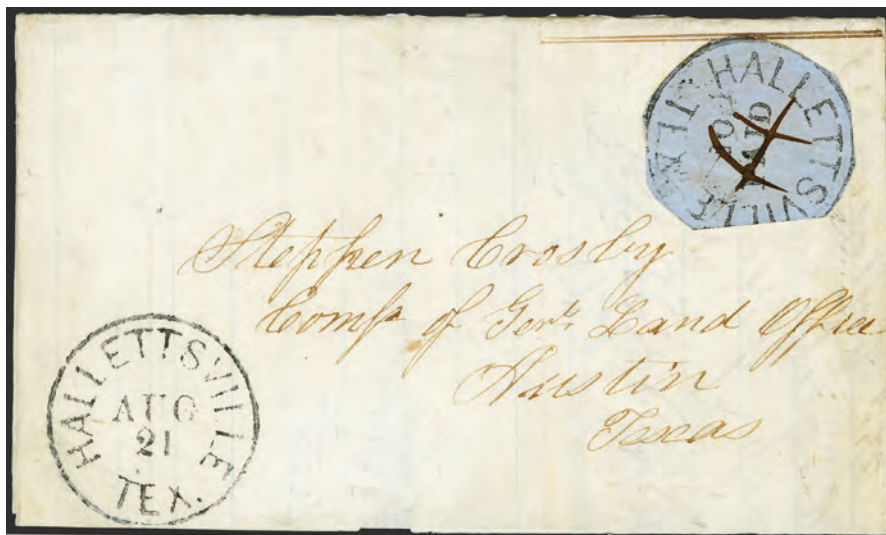 HALLETTSVILLE TEX.
PAID
Stephen Crosby
Comr of Genl Land Office
Austin
Texas
HALLETTSVILLE
AUG
21
TEX.